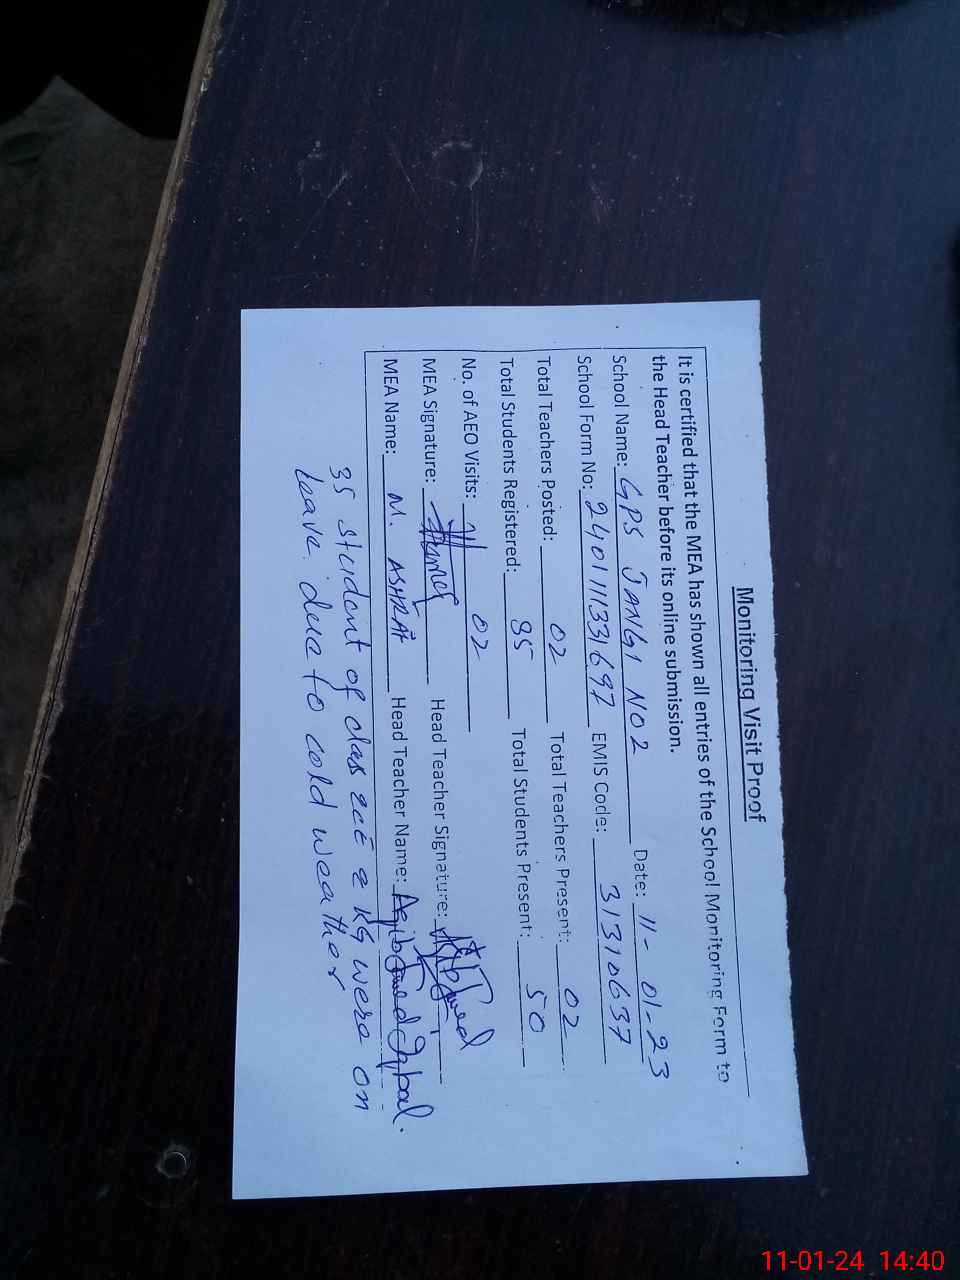 Monitoring Visit Proof
It is certified that the MEA has shown all entries of the School Monitoring Form to
the Head Teacher before its online submission.
School Name: GPS JANGI NO2 Date: 11-01-23
School Form No: 2401111331697 EMIS Code: 31310637
Total Teachers Posted: 02 Total Teachers Present: 02
Total Students Registered: 85 Total Students Present: 50
No. of AEO Visits: 02
MEA Signature: Head Teacher Signature:
MEA Name: M. ASHRAF Head Teacher Name: Aqib Javed Iqbal.
35 student of class ece & KG were on
leave due to cold weather
11-01-24 14:40